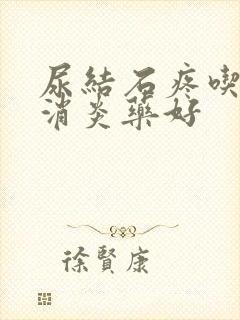 尿結石疼喫
消炎藥好
徐賢康